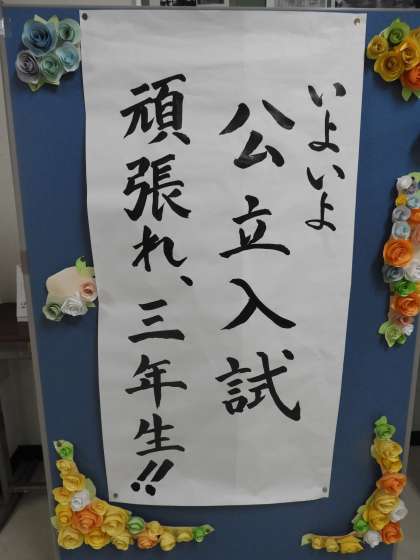 いよいよ
公立入試
頑張れ、三年生!!